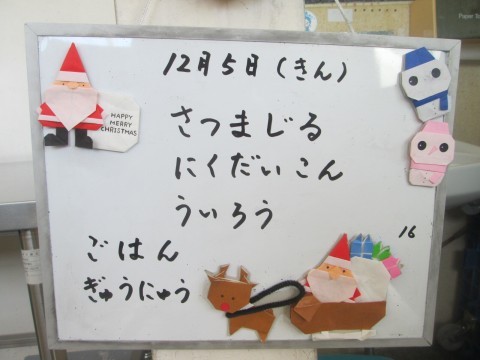 12月5日(きん)
HAPPY
MERRY
CHRISTMAS
さつまじる
にくだいこん
ういろう
16
ごはん
ぎゅうにゅう